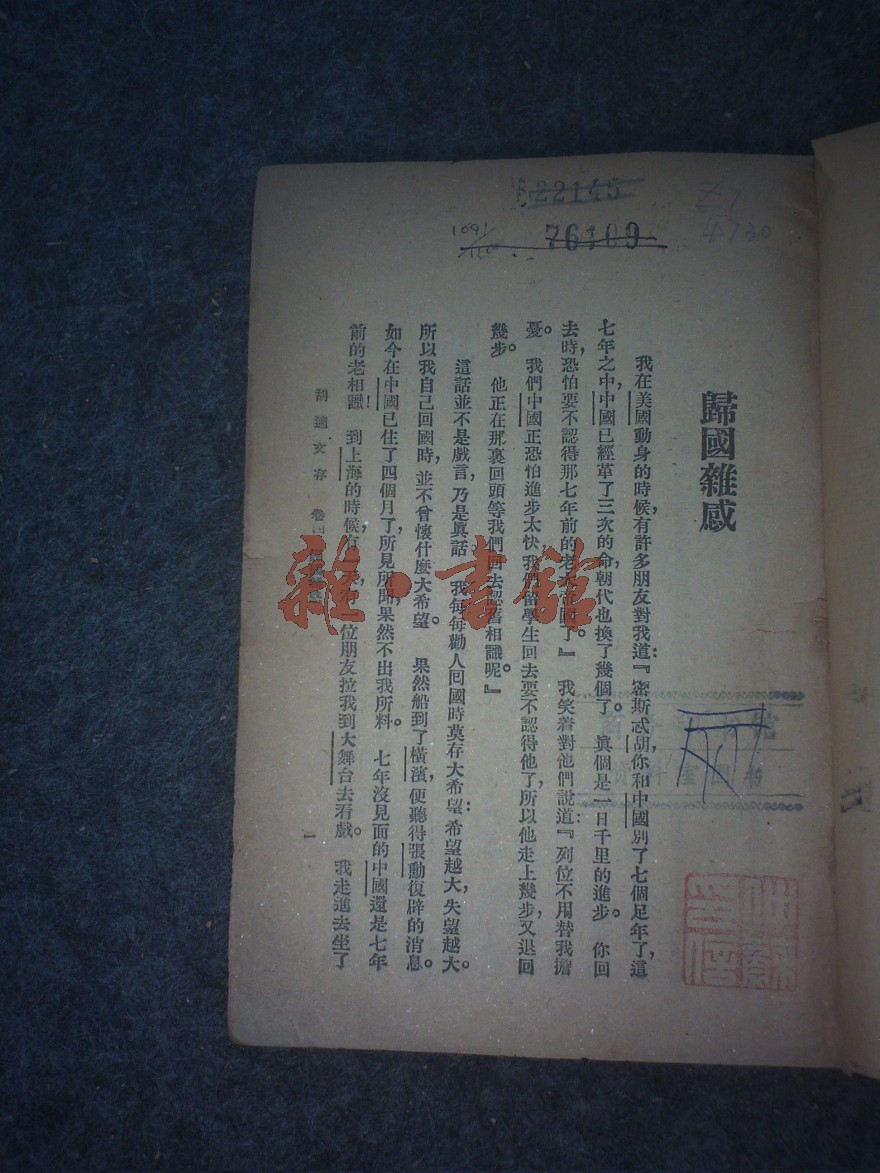 22145
76109
歸國雜感
我在美國動身的時候，有許多朋友對我道：『密斯忒胡，你和中國別了七個足年了，這
七年之中，中國已經革了三次的命，朝代也換了幾個了。眞個是一日千里的進步。你回
去時，恐怕要不認得那七年前的老大帝國了。』我笑着對他們說道：『列位不用替我擔
憂。我們中國正恐怕進步太快，我們留學生回去要不認得他了，所以他走上幾步，又退回
幾步。他正在那裏回頭等我們回去認舊相識呢。』
這話並不是戲言，乃是眞話。我每每勸人回國時莫存大希望：希望越大，失望越大。
所以我自己回國時，並不曾懷什麼大希望。果然船到了橫濱，便聽得張勳復辟的消息。
如今在中國已住了四個月了，所見所聞，果然不出我所料。七年沒見面的中國還是七年
前的老相識！到上海的時候，有一天，有一位朋友拉我到大舞台去看戲。我走進去坐了
胡適文存 卷四
一
雜·書館